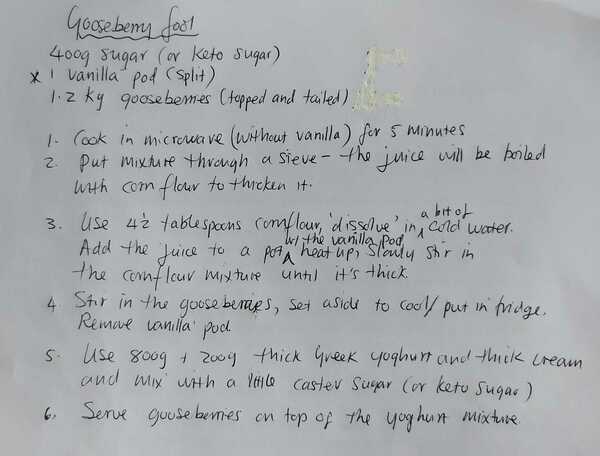 Gooseberry fool
400g sugar (or keto sugar)
x 1 vanilla pod (split)
1.2 kg gooseberries (topped and tailed)
1. Cook in microwave (without vanilla) for 5 minutes
2. Put mixture through a sieve – the juice will be boiled
with corn flour to thicken it.
3. Use 4½ tablespoons cornflour, 'dissolve' in a bit of cold water.
Add the juice to a pot w/ the vanilla pod, heat up, slowly stir in
the cornflour mixture until it's thick
4. Stir in the gooseberries, set aside to cool/put in fridge.
Remove vanilla pod
5. Use 800g + 200g thick Greek yoghurt and thick cream
and mix with a little caster sugar (or keto sugar)
6. Serve gooseberries on top of the yoghurt mixture.